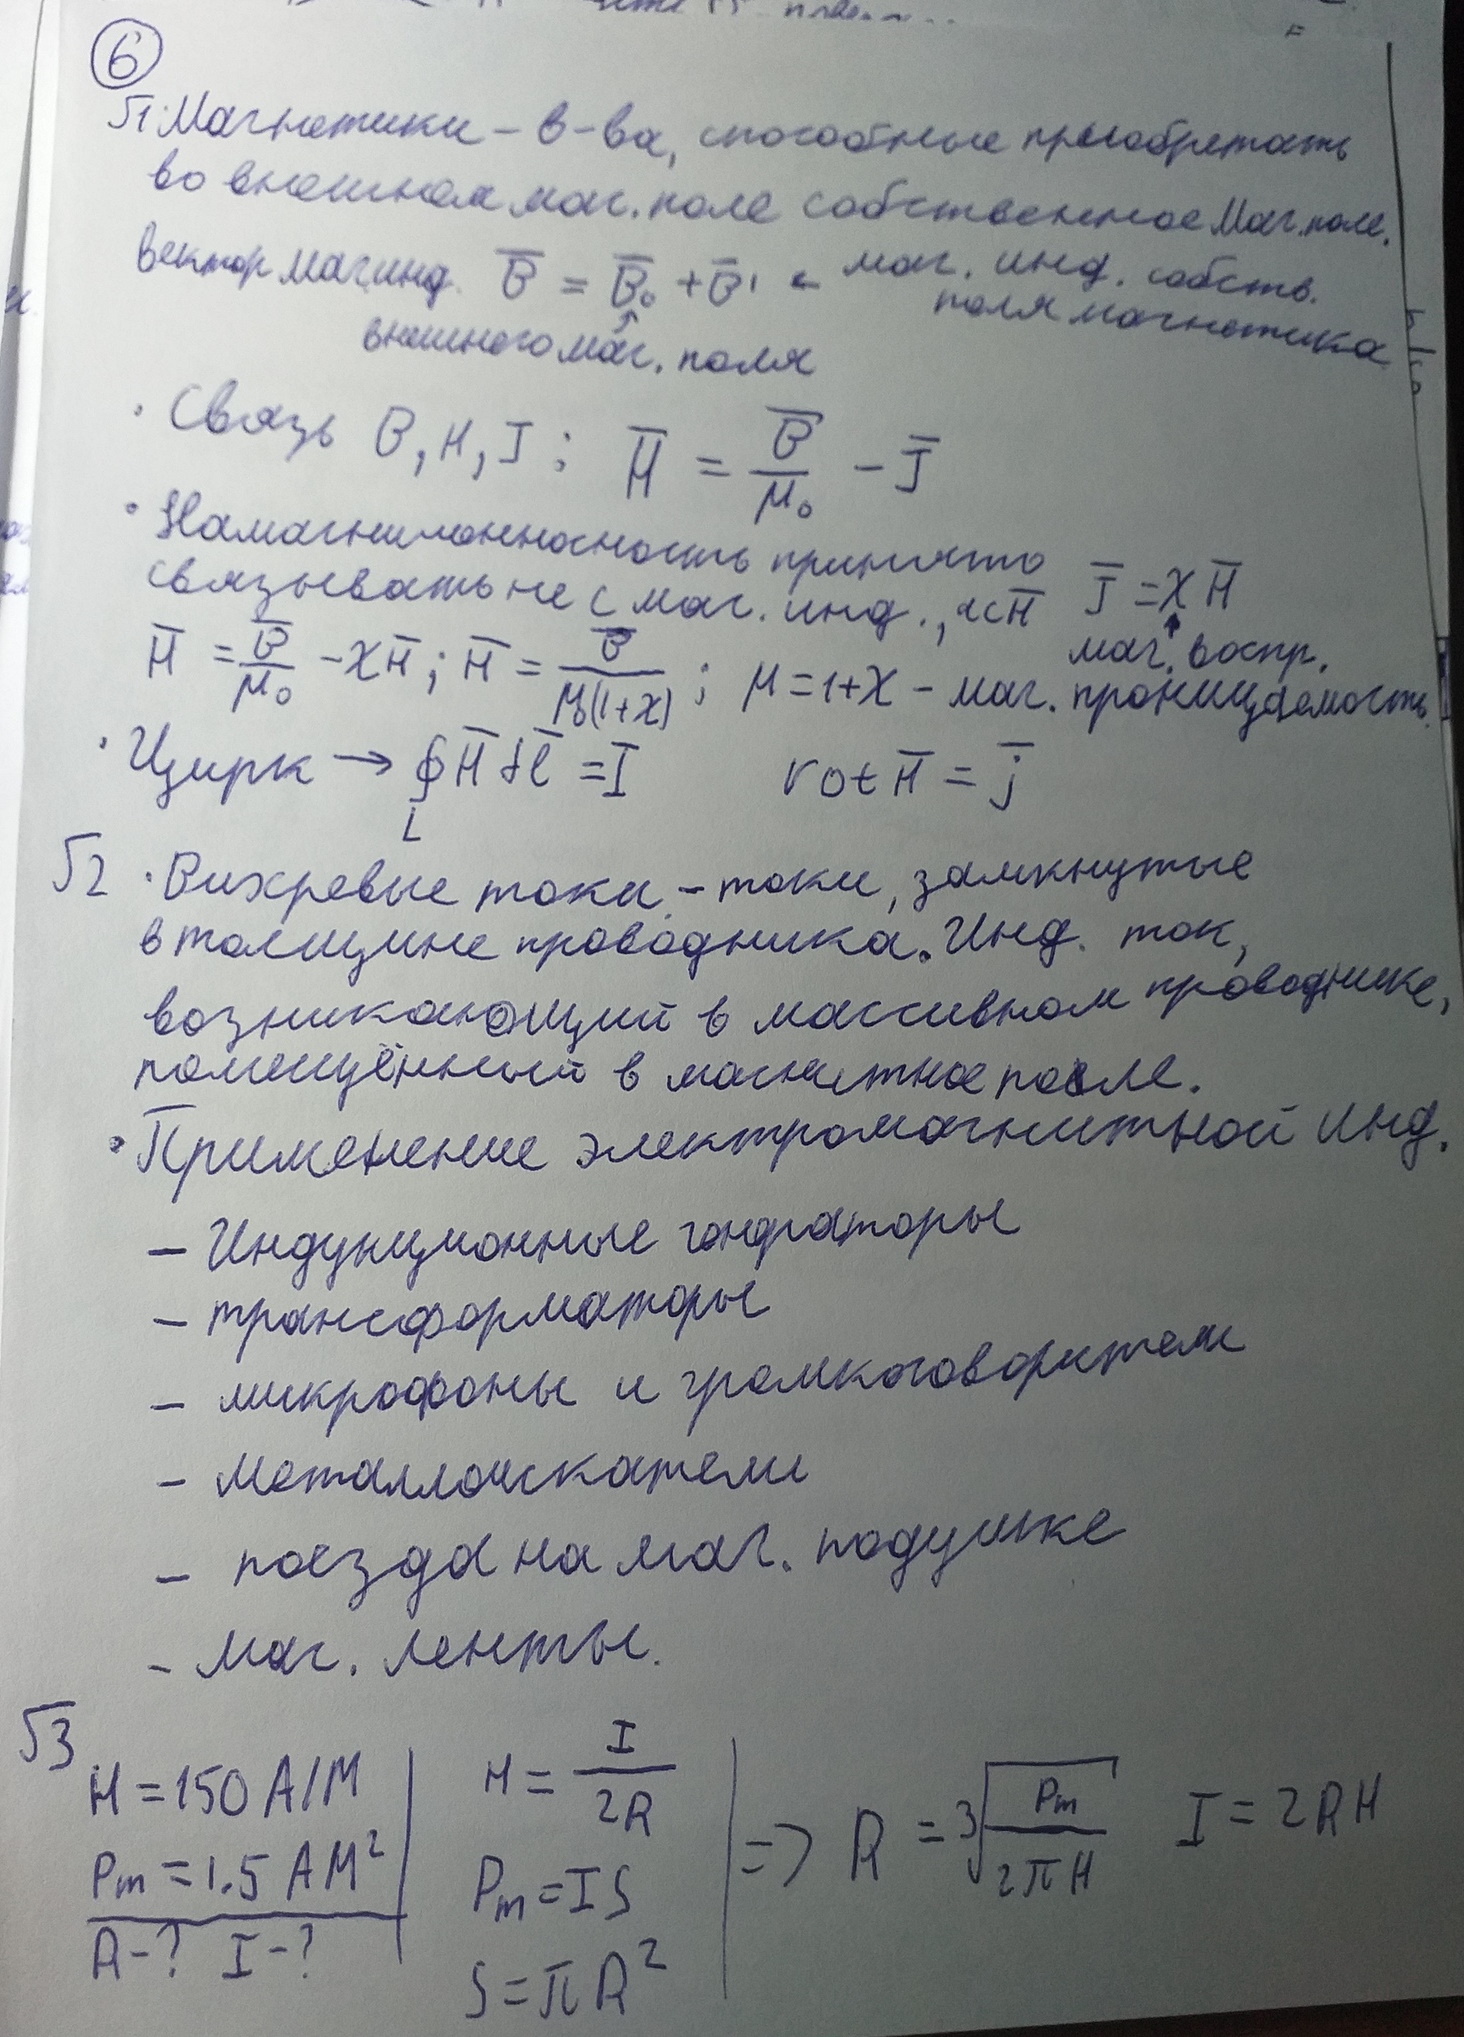 6
√1 Магнетики – в-ва, способные приобретать
во внешнем маг. поле собственное маг. поле.
вектор маг инд. B̅ = B̅₀ + B̅' ← маг. инд. собств.
поля магнетика
внешнего маг. поля
· Связь B, H, J : H̅ = B̅/μ₀ – J̅
· Намагниченность принято
связывать не с маг. инд., а с H̅ J̅ = χH̅
маг. воспр.
H̅ = B̅/μ₀ – χH̅ ; H̅ = B̅/μ₀(1+χ) ; μ = 1+χ – маг. проницаемость
· Цирк → ∮ H̅ dl̅ = I rot H̅ = j̅
L
√2 · Вихревые токи – токи, замкнутые
в толщине проводника. Инд. ток,
возникающий в массивном проводнике,
помещённый в магнитное поле.
· Применение электромагнитной инд.
– Индукционные генераторы
– трансформаторы
– микрофоны и громкоговорители
– металлоискатели
– поезда на маг. подушке
– маг. ленты.
√3
H = 150 А/М
Pm = 1.5 АМ²
R-? I-?
H = I/2R
Pm = IS
S = πR²
=> R = ∛(Pm/2πH) I = 2RH